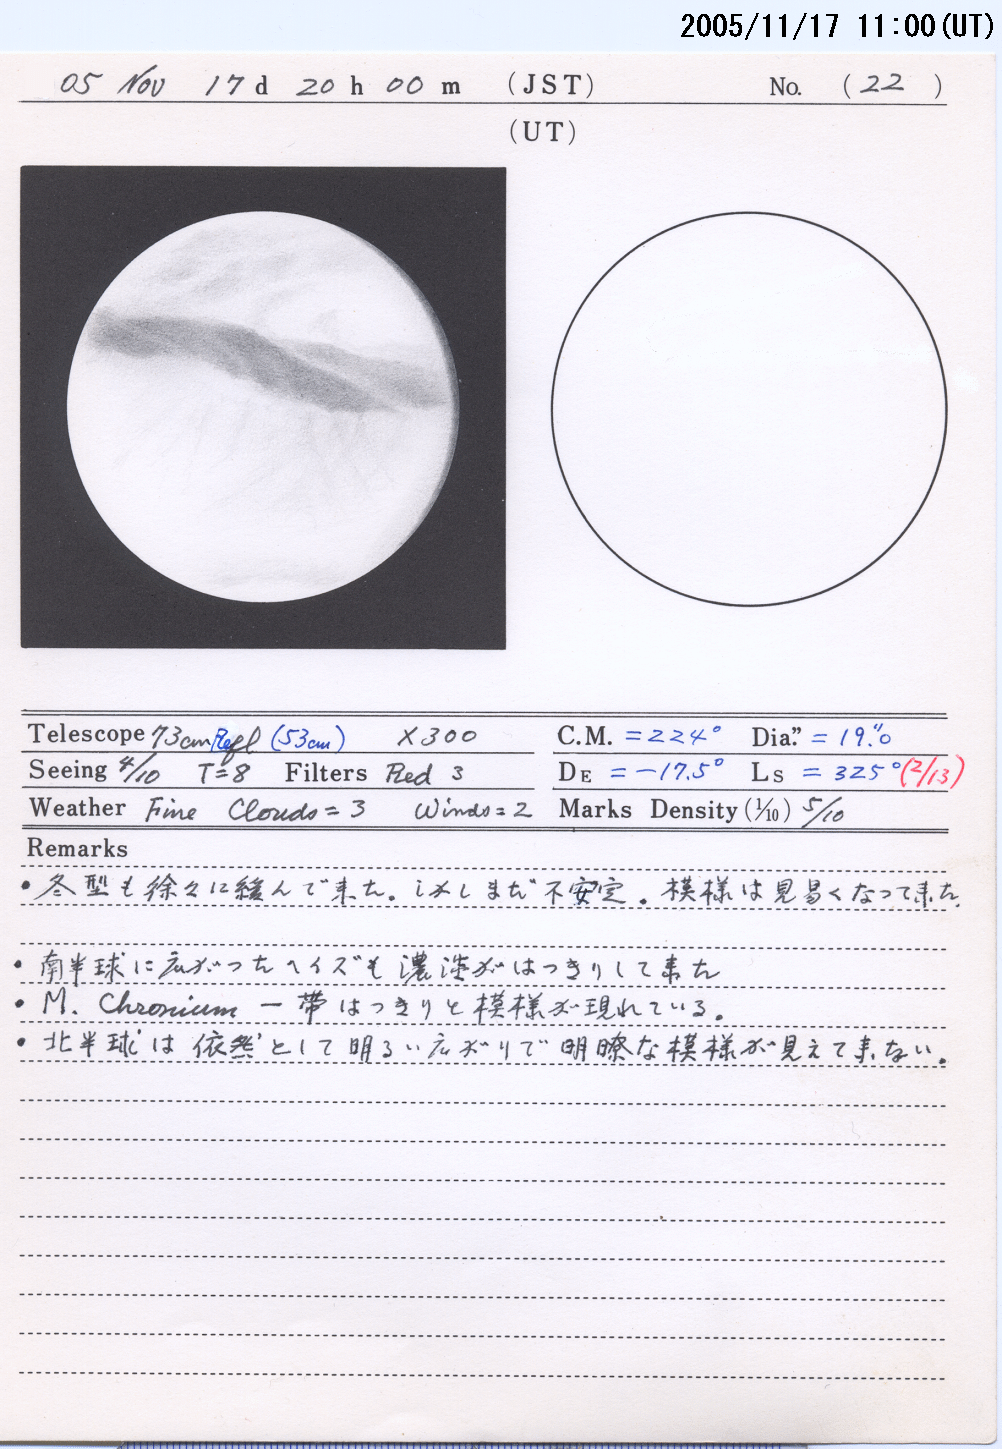 2005/11/17 11:00(UT)
05 Nov 17 d 20 h 00 m (JST) No. (22)
(UT)
Telescope 73cm Refl (53cm) ×300 C.M. =224° Dia." =19."0
Seeing 4/10 T=8 Filters Red 3 DE =-17.5° Ls =325° (2/13)
Weather Fine Clouds=3 Winds=2 Marks Density (1/10) 5/10
Remarks
・冬型も徐々に緩んで来た。しかしまだ不安定。模様は見易くなって来た。
・南半球に広がったヘイズも濃淡がはっきりして来た
・M. Chronium 一帯はっきりと模様が現れている。
・北半球は依然として明るい広がりで明瞭な模様が見えて来ない。